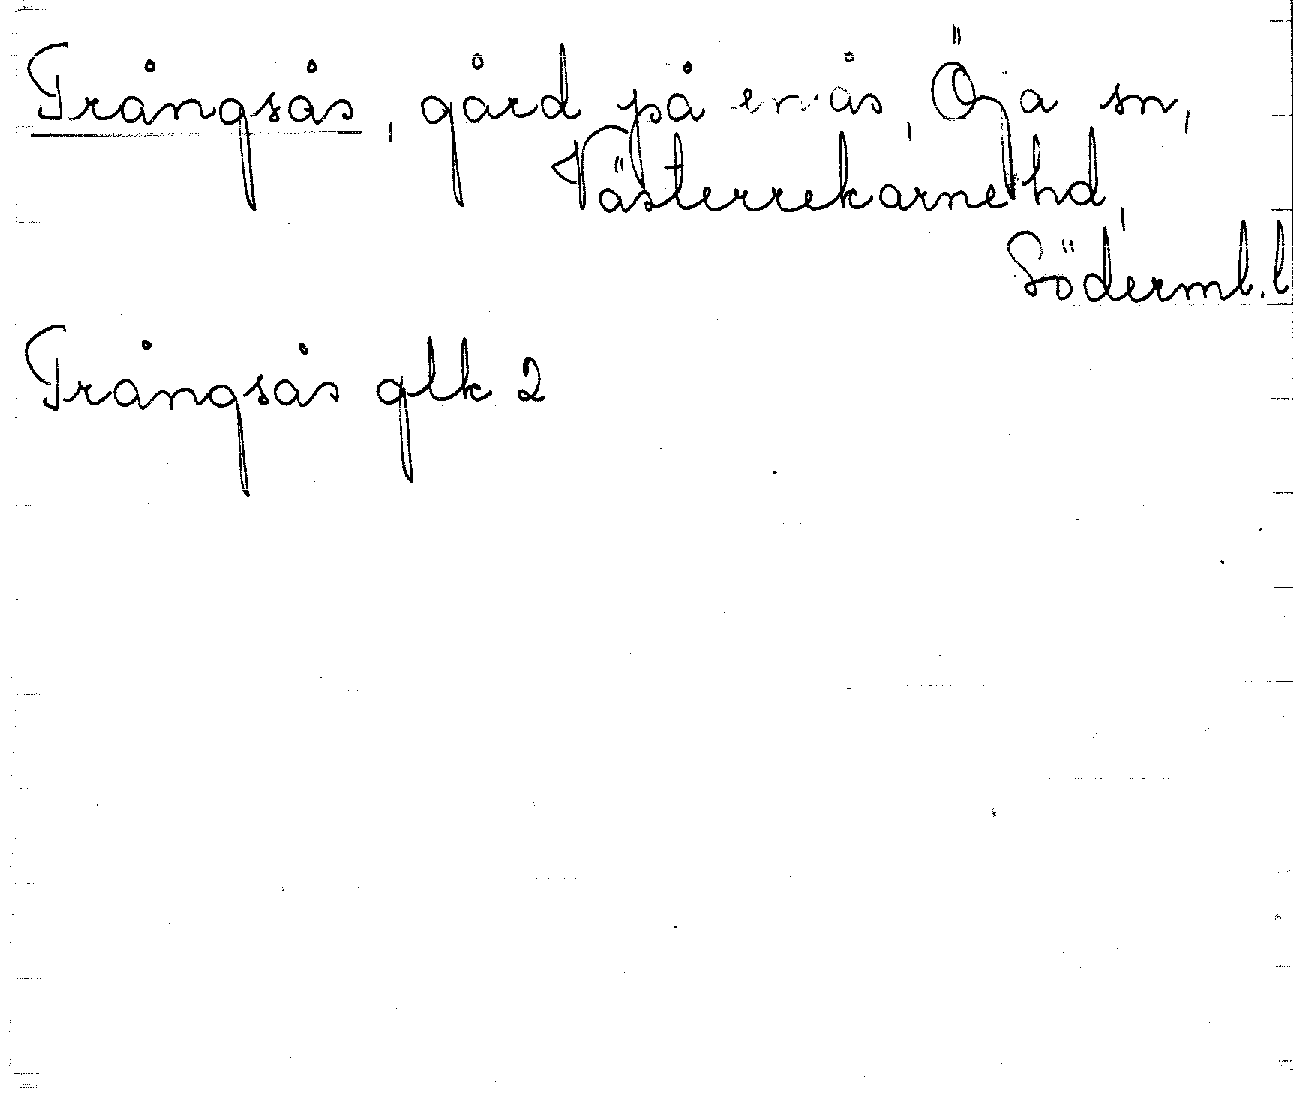 Trångsås, gård på en ås, Öja sn,
Västerrekarne hd,
Söderml. l
Trångsås glk 2